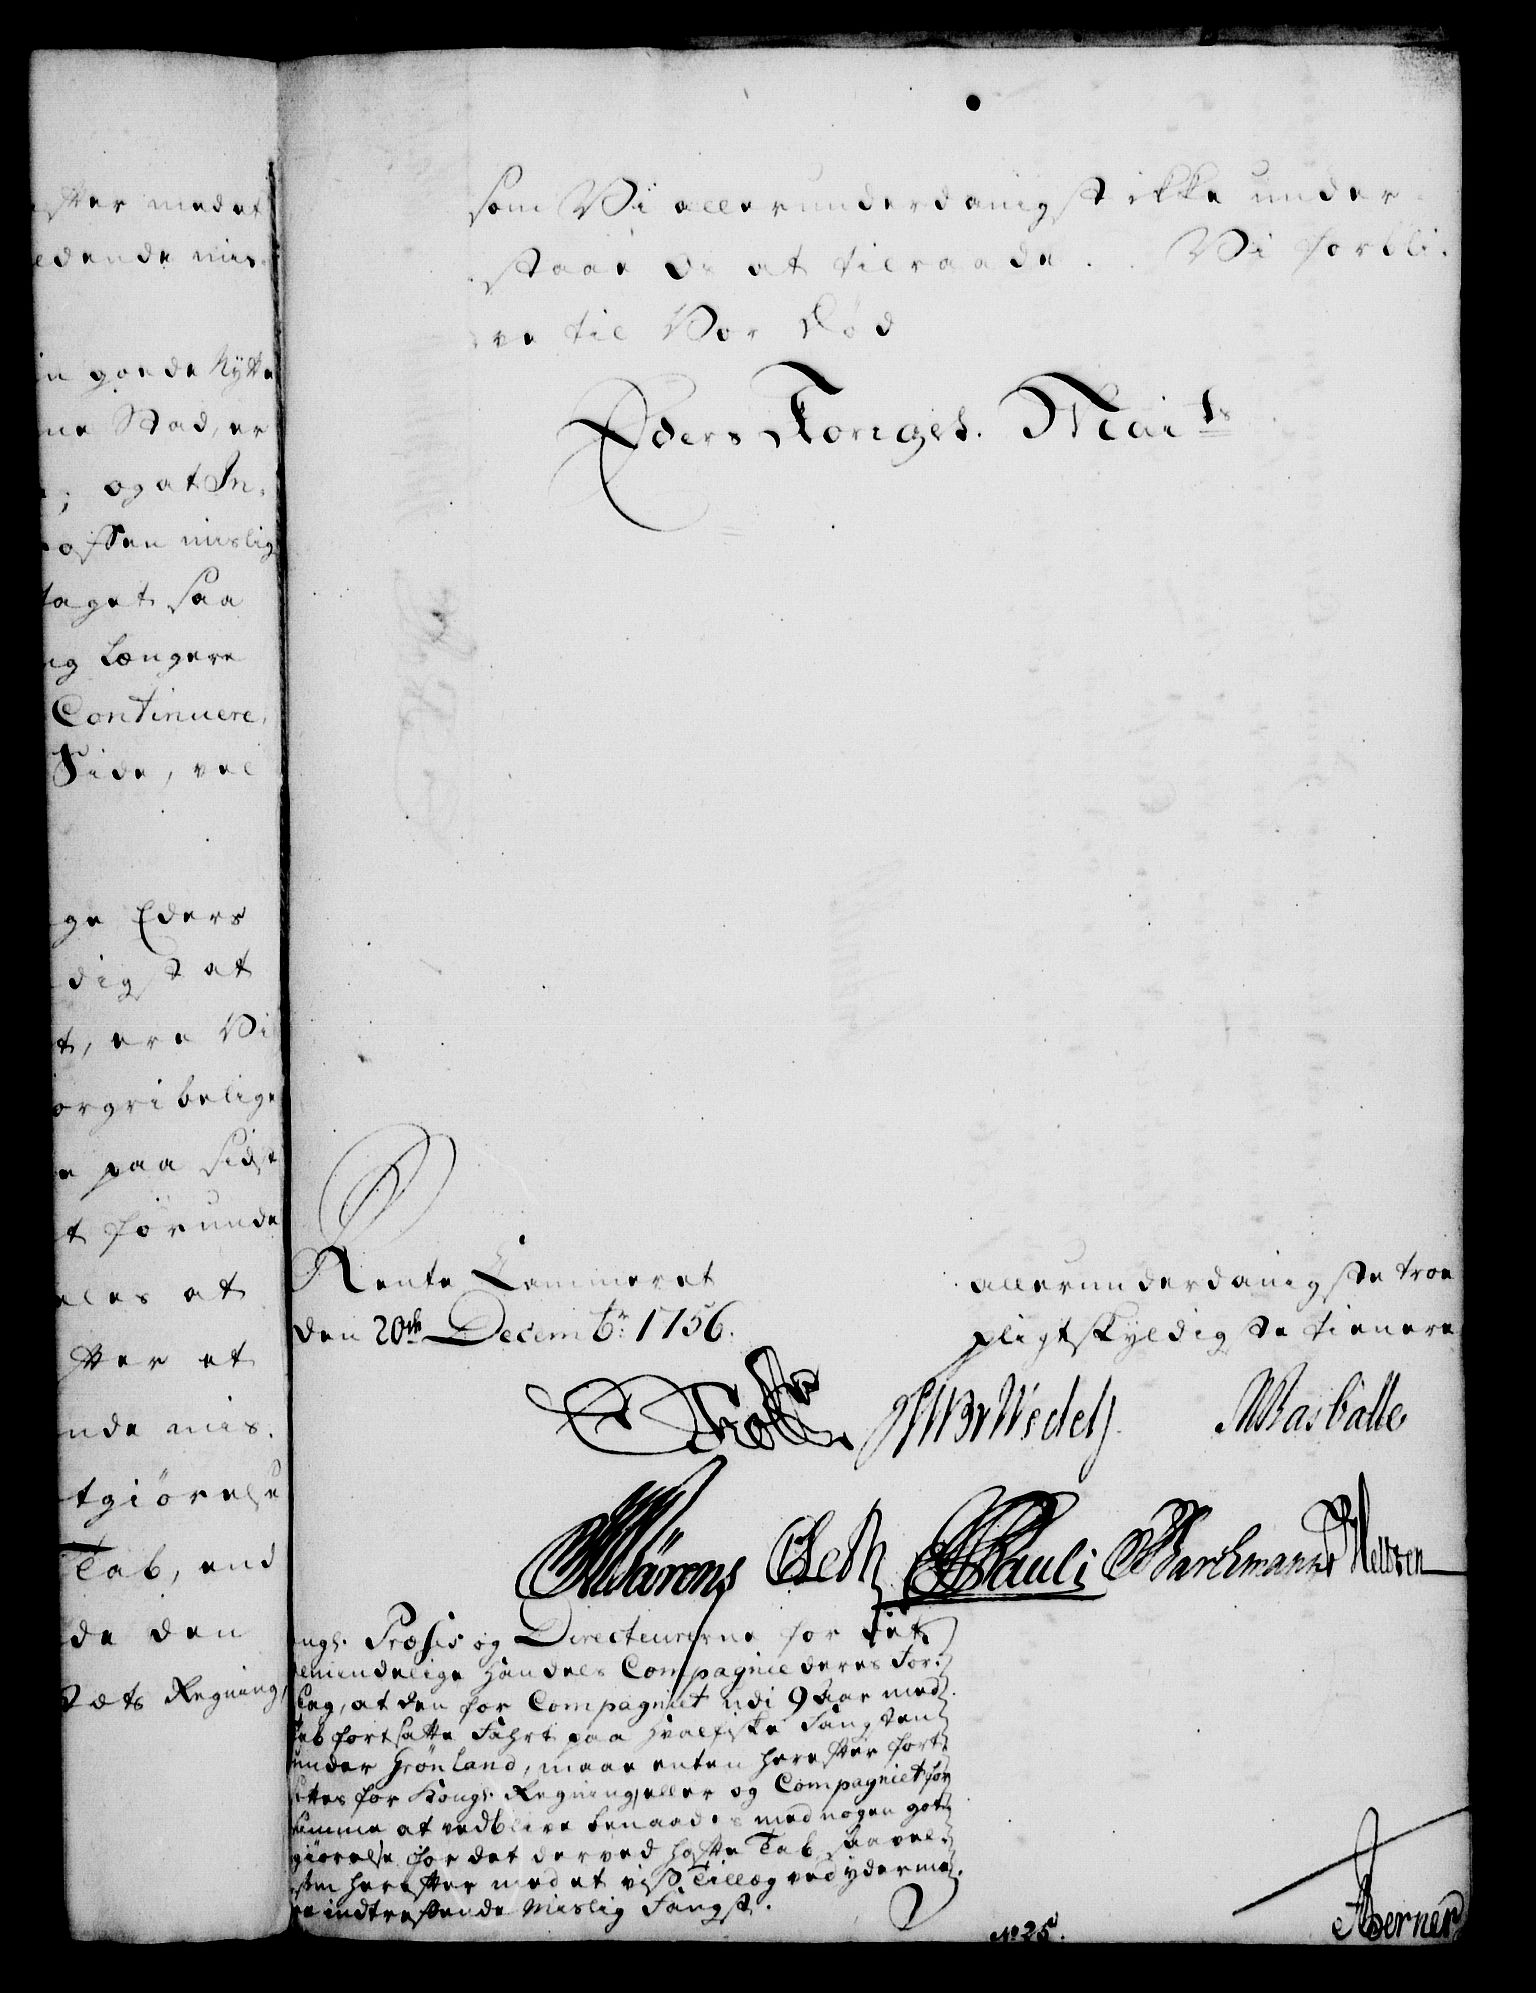 efter medet
edende mis-
in goede Nytte
me Stad, er
; og at In-
offen mislig
taget saa
ig længere
Continuere,
Side, vel
ge Eders
digst at
t, ere Vi
orgribelige
e paa sidste
t forunde
eles at
fter et
nde mis-
tgiørelse
Tab, end
de den
Regning,
som Vi allerunderdanigst ikke under-
staae os at tilraade. Vi forbli-
ve til Vor Død
Eders Kongel. Maits
Rente Cammeret
den 20de Decembr. 1756.
allerunderdanigste troe
pligtskyldigste tienere
Wedel
Rasballe
Pauli Barchmann
Kongl. Præsis og Directeurerne for det
almindelige Handels Compagnie deres For-
slag, at den for Compagniet udi 9 Aar med
Tab fortsatte Fahrt paa Hvalfiske Fangsten
under Grønland, maae enten herefter fort-
settes for Kongl. Regning, eller og Compagniet for
samme at vedblive benaades med nogen got-
giørelse for det derved hafte Tab, saavel-
som herefter med et vist Tillæg ved yderme-
re indtreffende Mislig Fangst.
No 25.
Berner